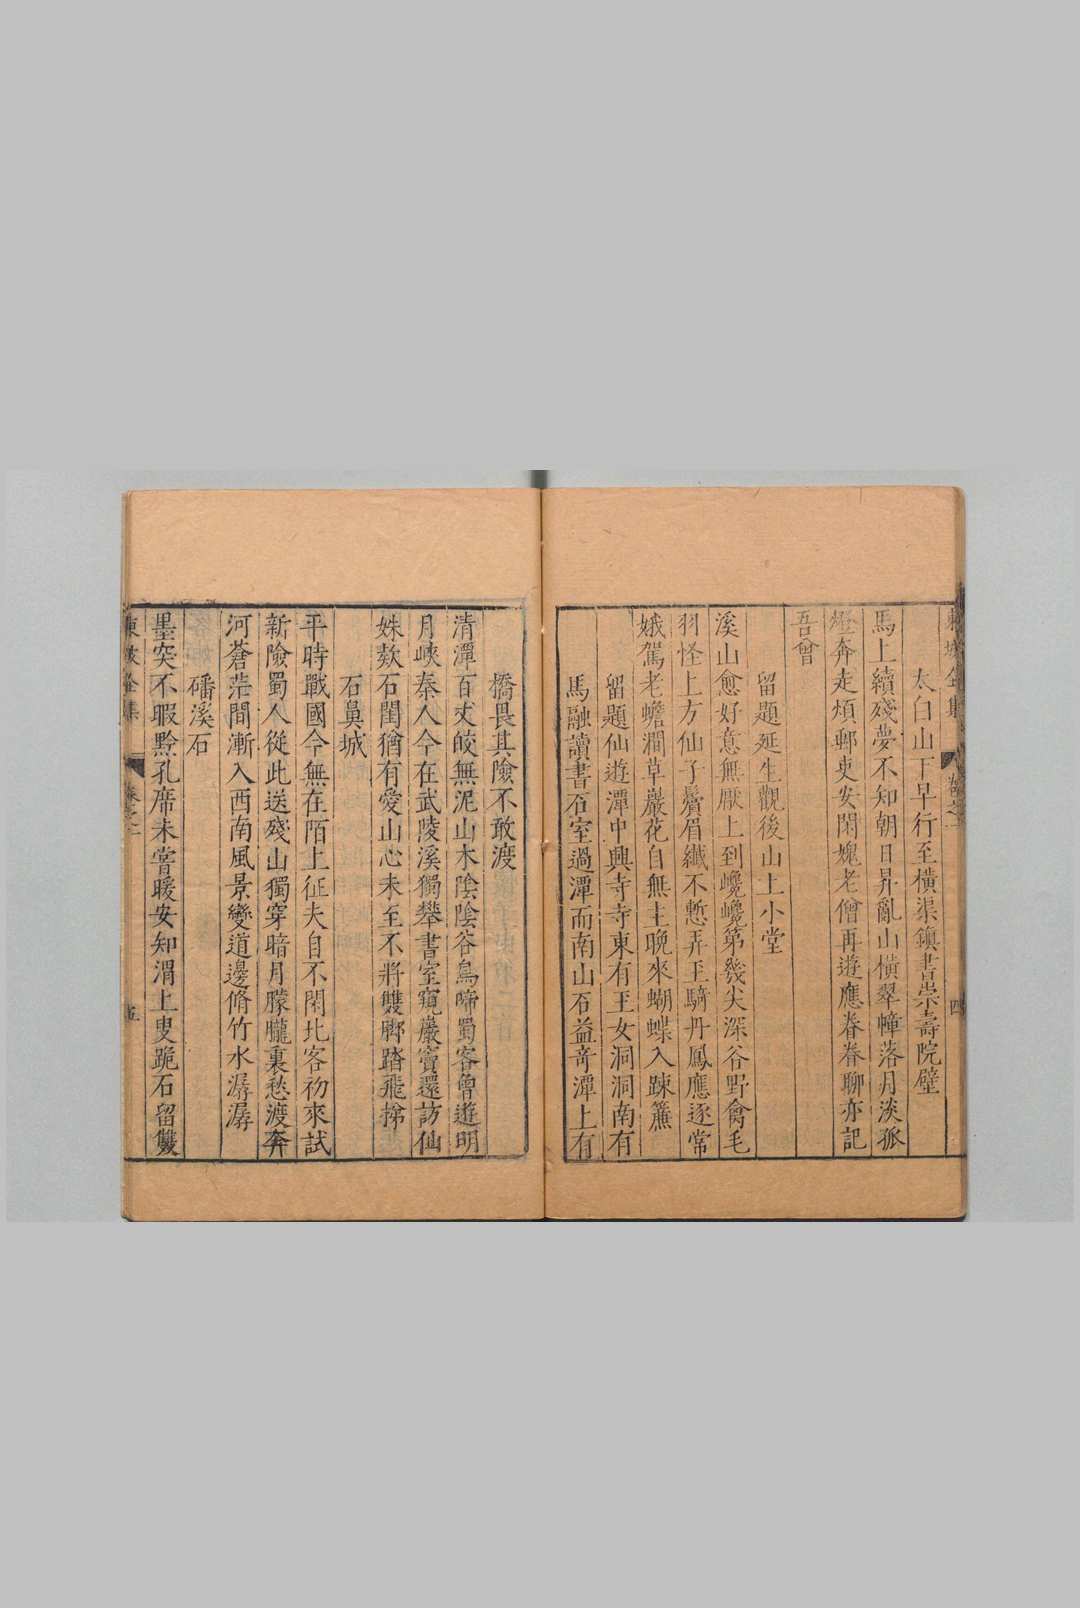 太白山下早行至橫渠鎮書崇壽院壁
馬上續殘夢不知朝日昇亂山橫翠幛落月淡孤
燈奔走煩郵吏安閑媿老僧再遊應眷眷聊亦記
吾曾
留題延生觀後山上小堂
溪山愈好意無厭上到巉巉第幾尖深谷野禽毛
羽怪上方仙子鬢眉纖不慙弄玉騎丹鳳應逐常
娥駕老蟾澗草巖花自無主晚來蝴蝶入踈簾
留題仙遊潭中興寺寺東有玉女洞洞南有
馬融讀書石室過潭而南山石益奇潭上有
橋畏其險不敢渡
清潭百丈皎無泥山木陰陰谷鳥啼蜀客曾遊明
月峽秦人今在武陵溪獨攀書室窺巖竇還訪仙
姝欵石閨猶有愛山心未至不將雙脚踏飛梯
石鼻城
平時戰國今無在陌上征夫自不閑北客初來試
新險蜀人從此送殘山獨穿暗月朦朧裏愁渡奔
河蒼茫間漸入西南風景變道邊脩竹水潺潺
磻溪石
墨突不暇黔孔席未嘗暖安知渭上叟跪石留雙
東坡全集
卷之一
五